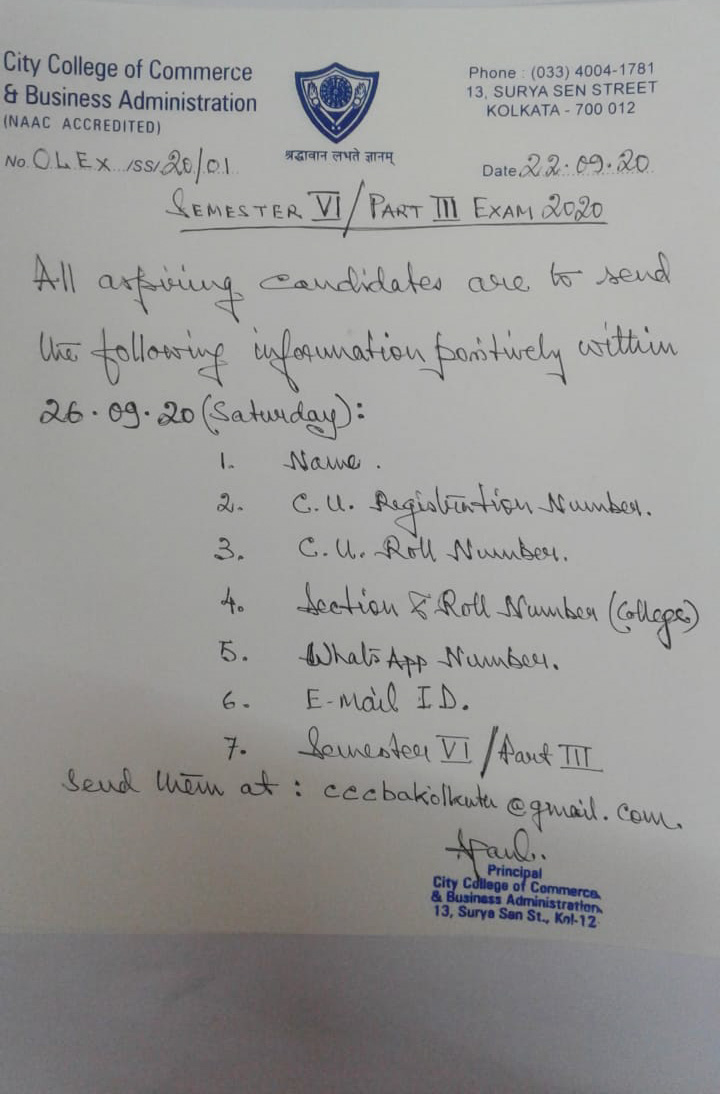 City College of Commerce
& Business Administration
(NAAC ACCREDITED)
श्रद्धावान लभते ज्ञानम्
Phone : (033) 4004-1781
13, SURYA SEN STREET
KOLKATA - 700 012
No. OLEX /SS/ 20/01
Date 22.09.20
SEMESTER VI/PART III EXAM 2020
All aspiring candidates are to send
the following information positively within
26.09.20 (Saturday):
1. Name.
2. C.U. Registration Number.
3. C.U. Roll Number.
4. Section & Roll Number (College)
5. WhatsApp Number.
6. E-mail ID.
7. Semester VI/Part III
Send them at : cccbakolkata@gmail.com.
Principal
City College of Commerce
& Business Administration
13, Surya Sen St., Kol-12